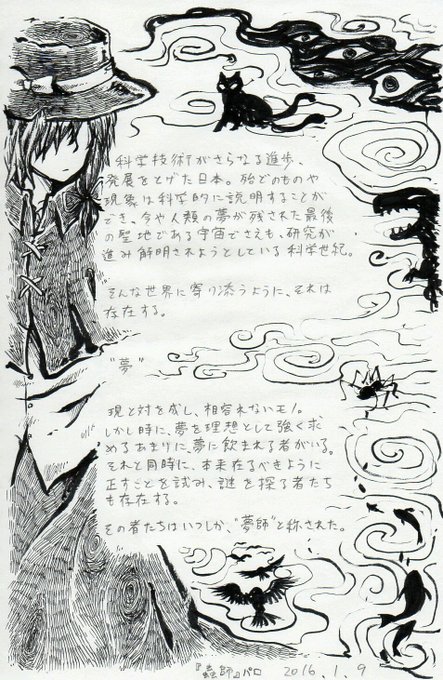 科学技術がさらなる進歩、
発展をとげた日本。殆どのものや
現象は科学的に説明することが
でき、今や人類の夢が残された最後
の聖地である宇宙でさえも、研究が
進み解明されようとしている科学世紀。
そんな世界に寄り添うように、それは
存在する。
"夢"
現と対を成し、相容れないモノ。
しかし時に、夢を理想として強く求
めるあまりに、夢に飲まれる者がいる。
それと同時に、本来在るべきように
正すことを試み、謎を探る者たち
も存在する。
その者たちはいつしか、"夢師"と称された。
『蟲師』パロ 2016.1.9